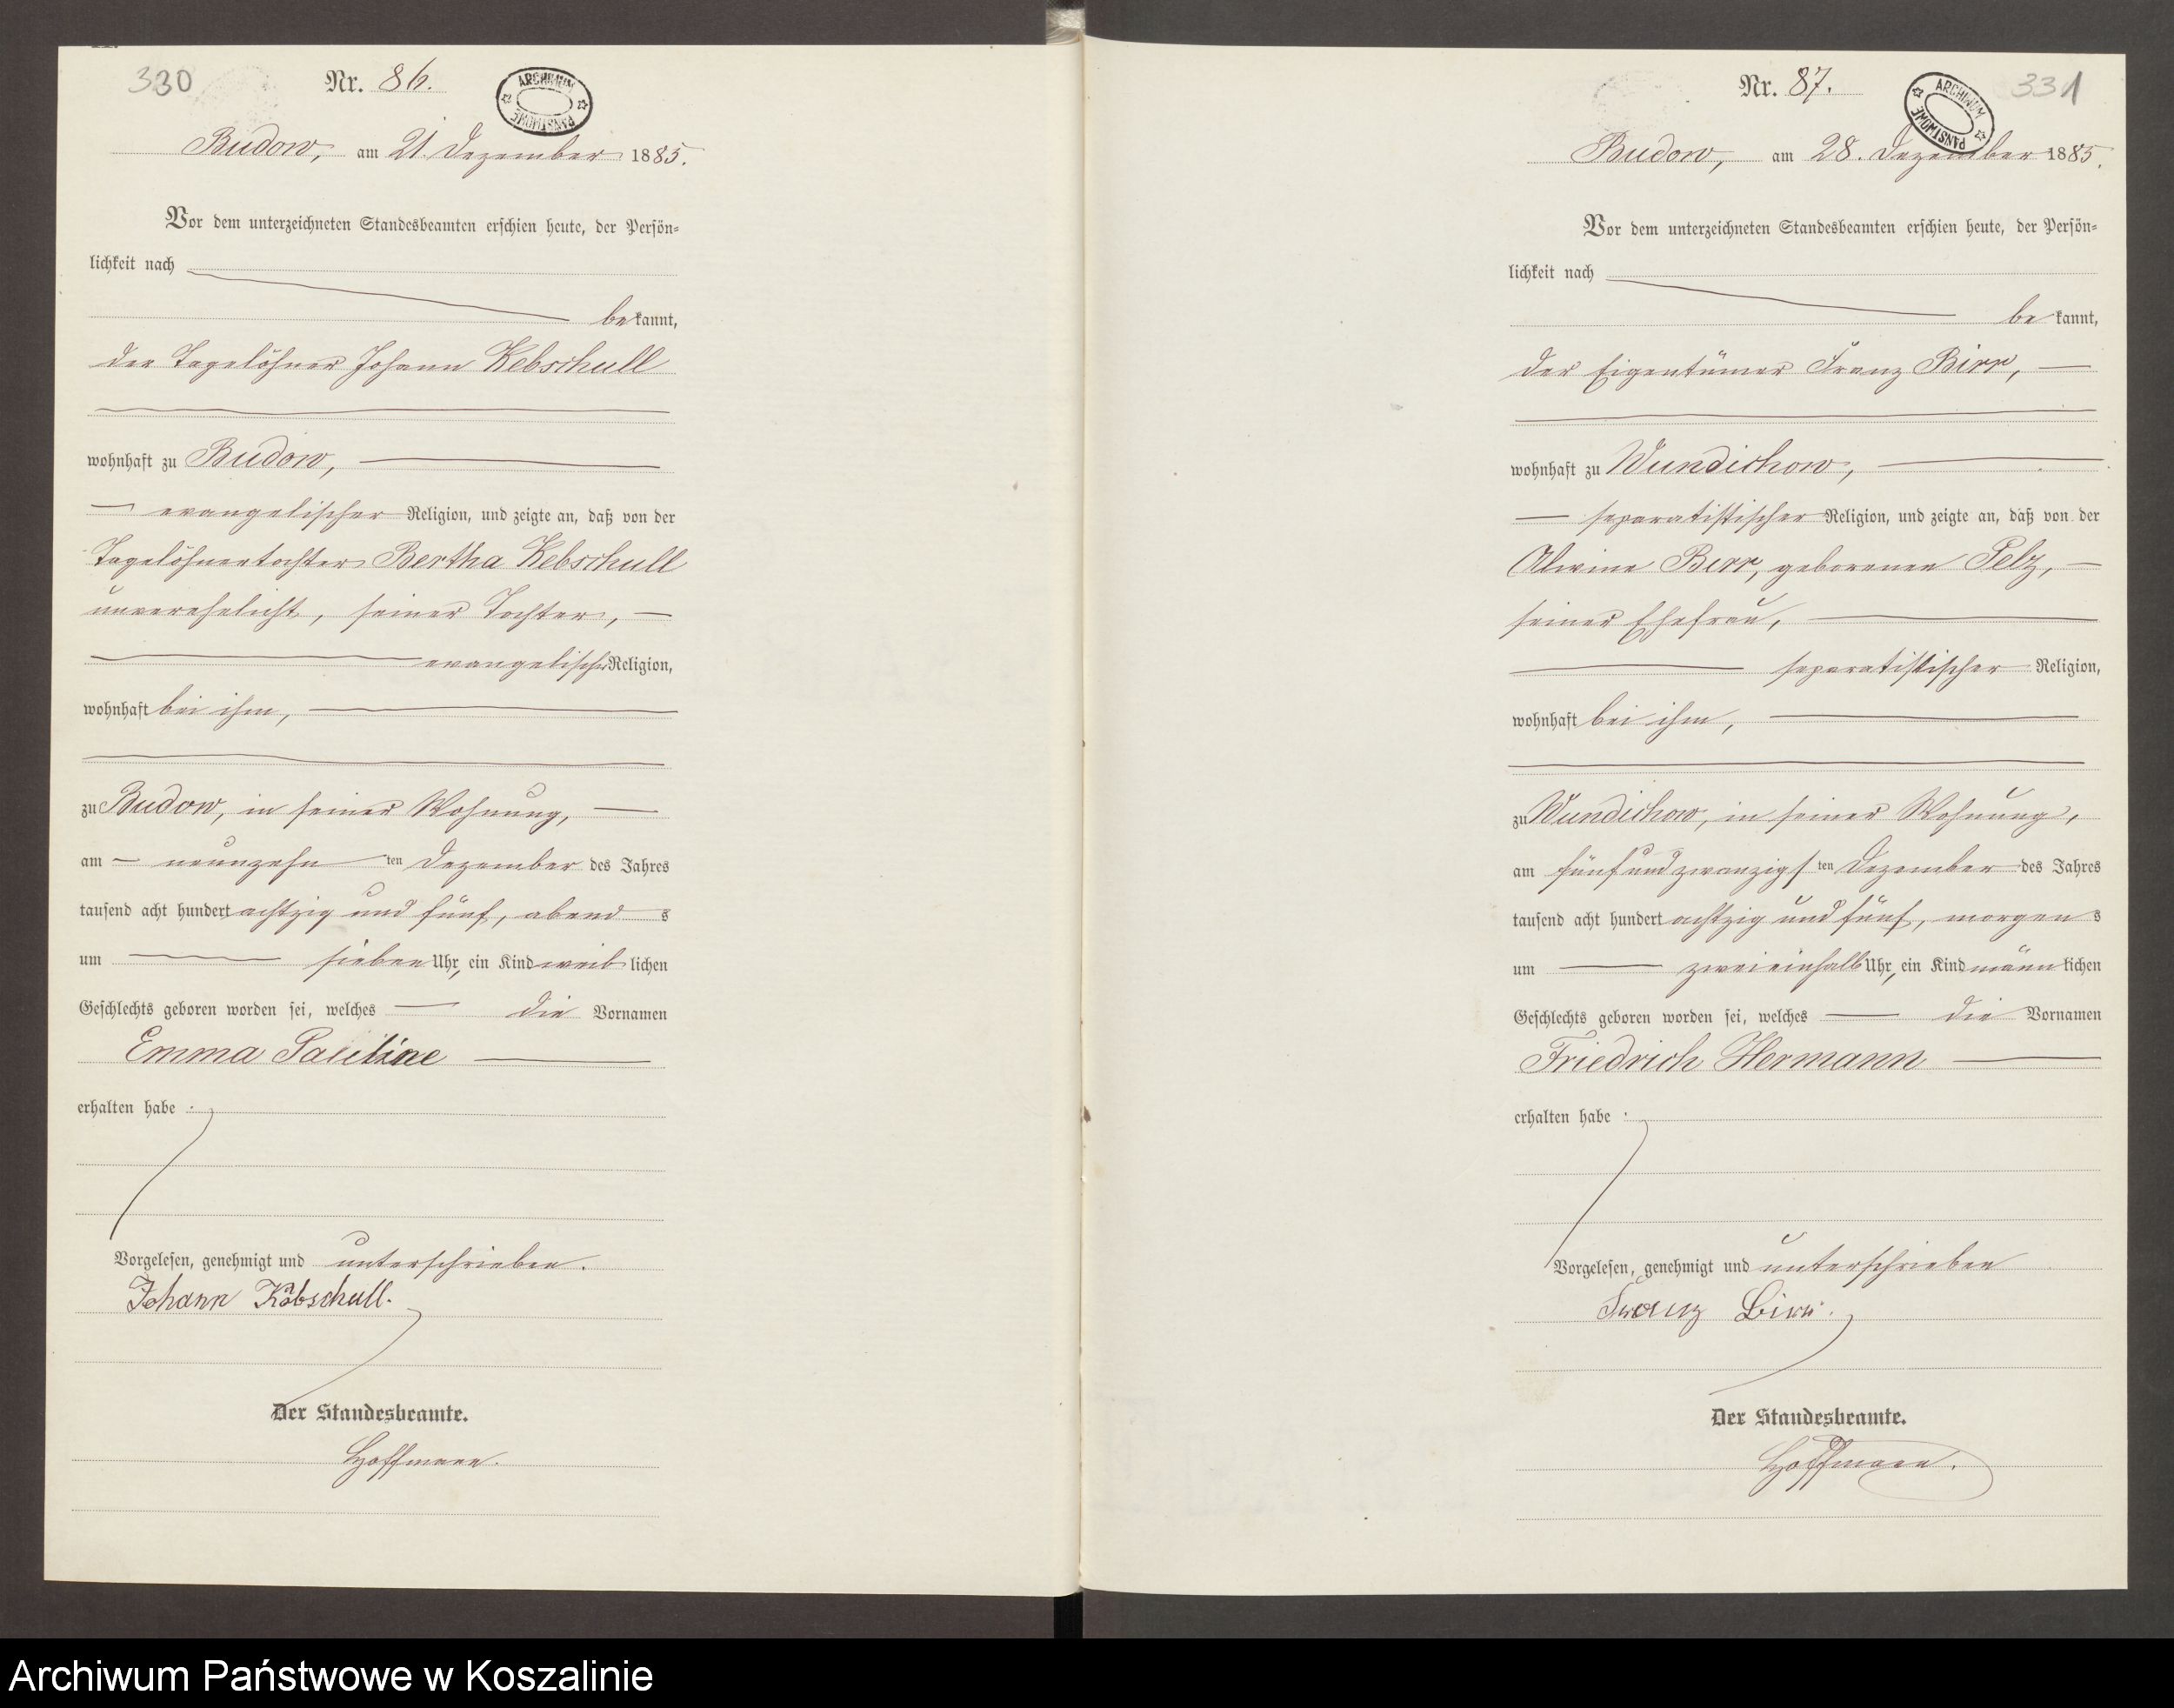 330
Nr. 86.
ARCHIWUM PAŃSTWOWE
Budow, am 21. Dezember 1885.
Vor dem unterzeichneten Standesbeamten erschien heute, der Persön-
lichkeit nach
bekannt,
der Tagelöhner Johann Kebschull
wohnhaft zu Budow,
evangelischer Religion, und zeigte an, daß von der
Tagelöhnertochter Bertha Kebschull
unverehelicht, seiner Tochter,
evangelischer Religion,
wohnhaft bei ihm,
zu Budow, in seiner Wohnung,
am neunzehnten Dezember des Jahres
tausend acht hundert achtzig und fünf, abends
um sieben Uhr, ein Kind weiblichen
Geschlechts geboren worden sei, welches die Vornamen
Emma Pauline
erhalten habe.
Vorgelesen, genehmigt und unterschrieben.
Johann Käbschull.
Der Standesbeamte.
Hoffmann.
331
Nr. 87.
ARCHIWUM PAŃSTWOWE
Budow, am 28. Dezember 1885.
Vor dem unterzeichneten Standesbeamten erschien heute, der Persön-
lichkeit nach
bekannt,
der Eigentümer Franz Birr,
wohnhaft zu Wundichow,
separatistischer Religion, und zeigte an, daß von der
Alwine Birr, geborenen Pelz,
seiner Ehefrau,
separatistischer Religion,
wohnhaft bei ihm,
zu Wundichow, in seiner Wohnung,
am fünfundzwanzigsten Dezember des Jahres
tausend acht hundert achtzig und fünf, morgens
um zweieinhalb Uhr, ein Kind männlichen
Geschlechts geboren worden sei, welches die Vornamen
Friedrich Hermann
erhalten habe.
Vorgelesen, genehmigt und unterschrieben
Franz Birr.
Der Standesbeamte.
Hoffmann.
Archiwum Państwowe w Koszalinie